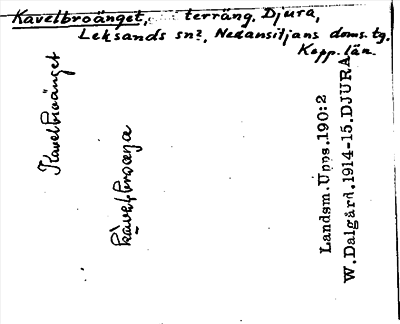 Kavelbroänget, terräng. Djura,
Leksands sn?, Nedansiljans doms. tg.
Kopp. län.
Kavelbroänget
Landsm. Upps. 190:2
W. Dalgård. 1914-15. DJURA